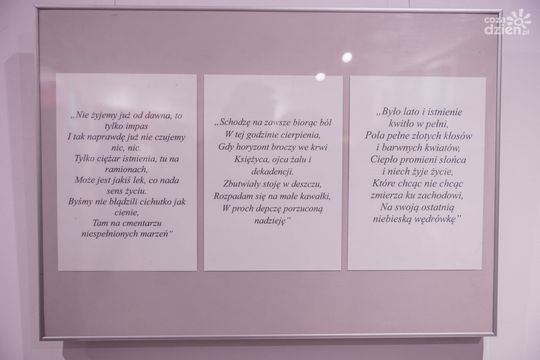 coza
dzień.pl
„Nie żyjemy już od dawna, to
tylko impas
I tak naprawdę już nie czujemy
nic, nic.
Tylko ciężar istnienia, tu na
ramionach,
Może jest jakiś lek, co nada
sens życiu.
Byśmy nie błądzili cichutko jak
cienie,
Tam na cmentarzu
niespełnionych marzeń”
„Schodzę na zawsze biorąc ból
W tej godzinie cierpienia,
Gdy horyzont broczy we krwi
Księżyca, ojca żalu i
dekadencji.
Zbutwiały stoję w deszczu,
Rozpadam się na małe kawałki,
W proch depczę porzuconą
nadzieję”
„Było lato i istnienie
kwitło w pełni,
Pola pełne złotych kłosów
i barwnych kwiatów,
Ciepło promieni słońca
i niech żyje życie,
Które chcąc nie chcąc
zmierza ku zachodowi,
Na swoją ostatnią
niebieską wędrówkę”